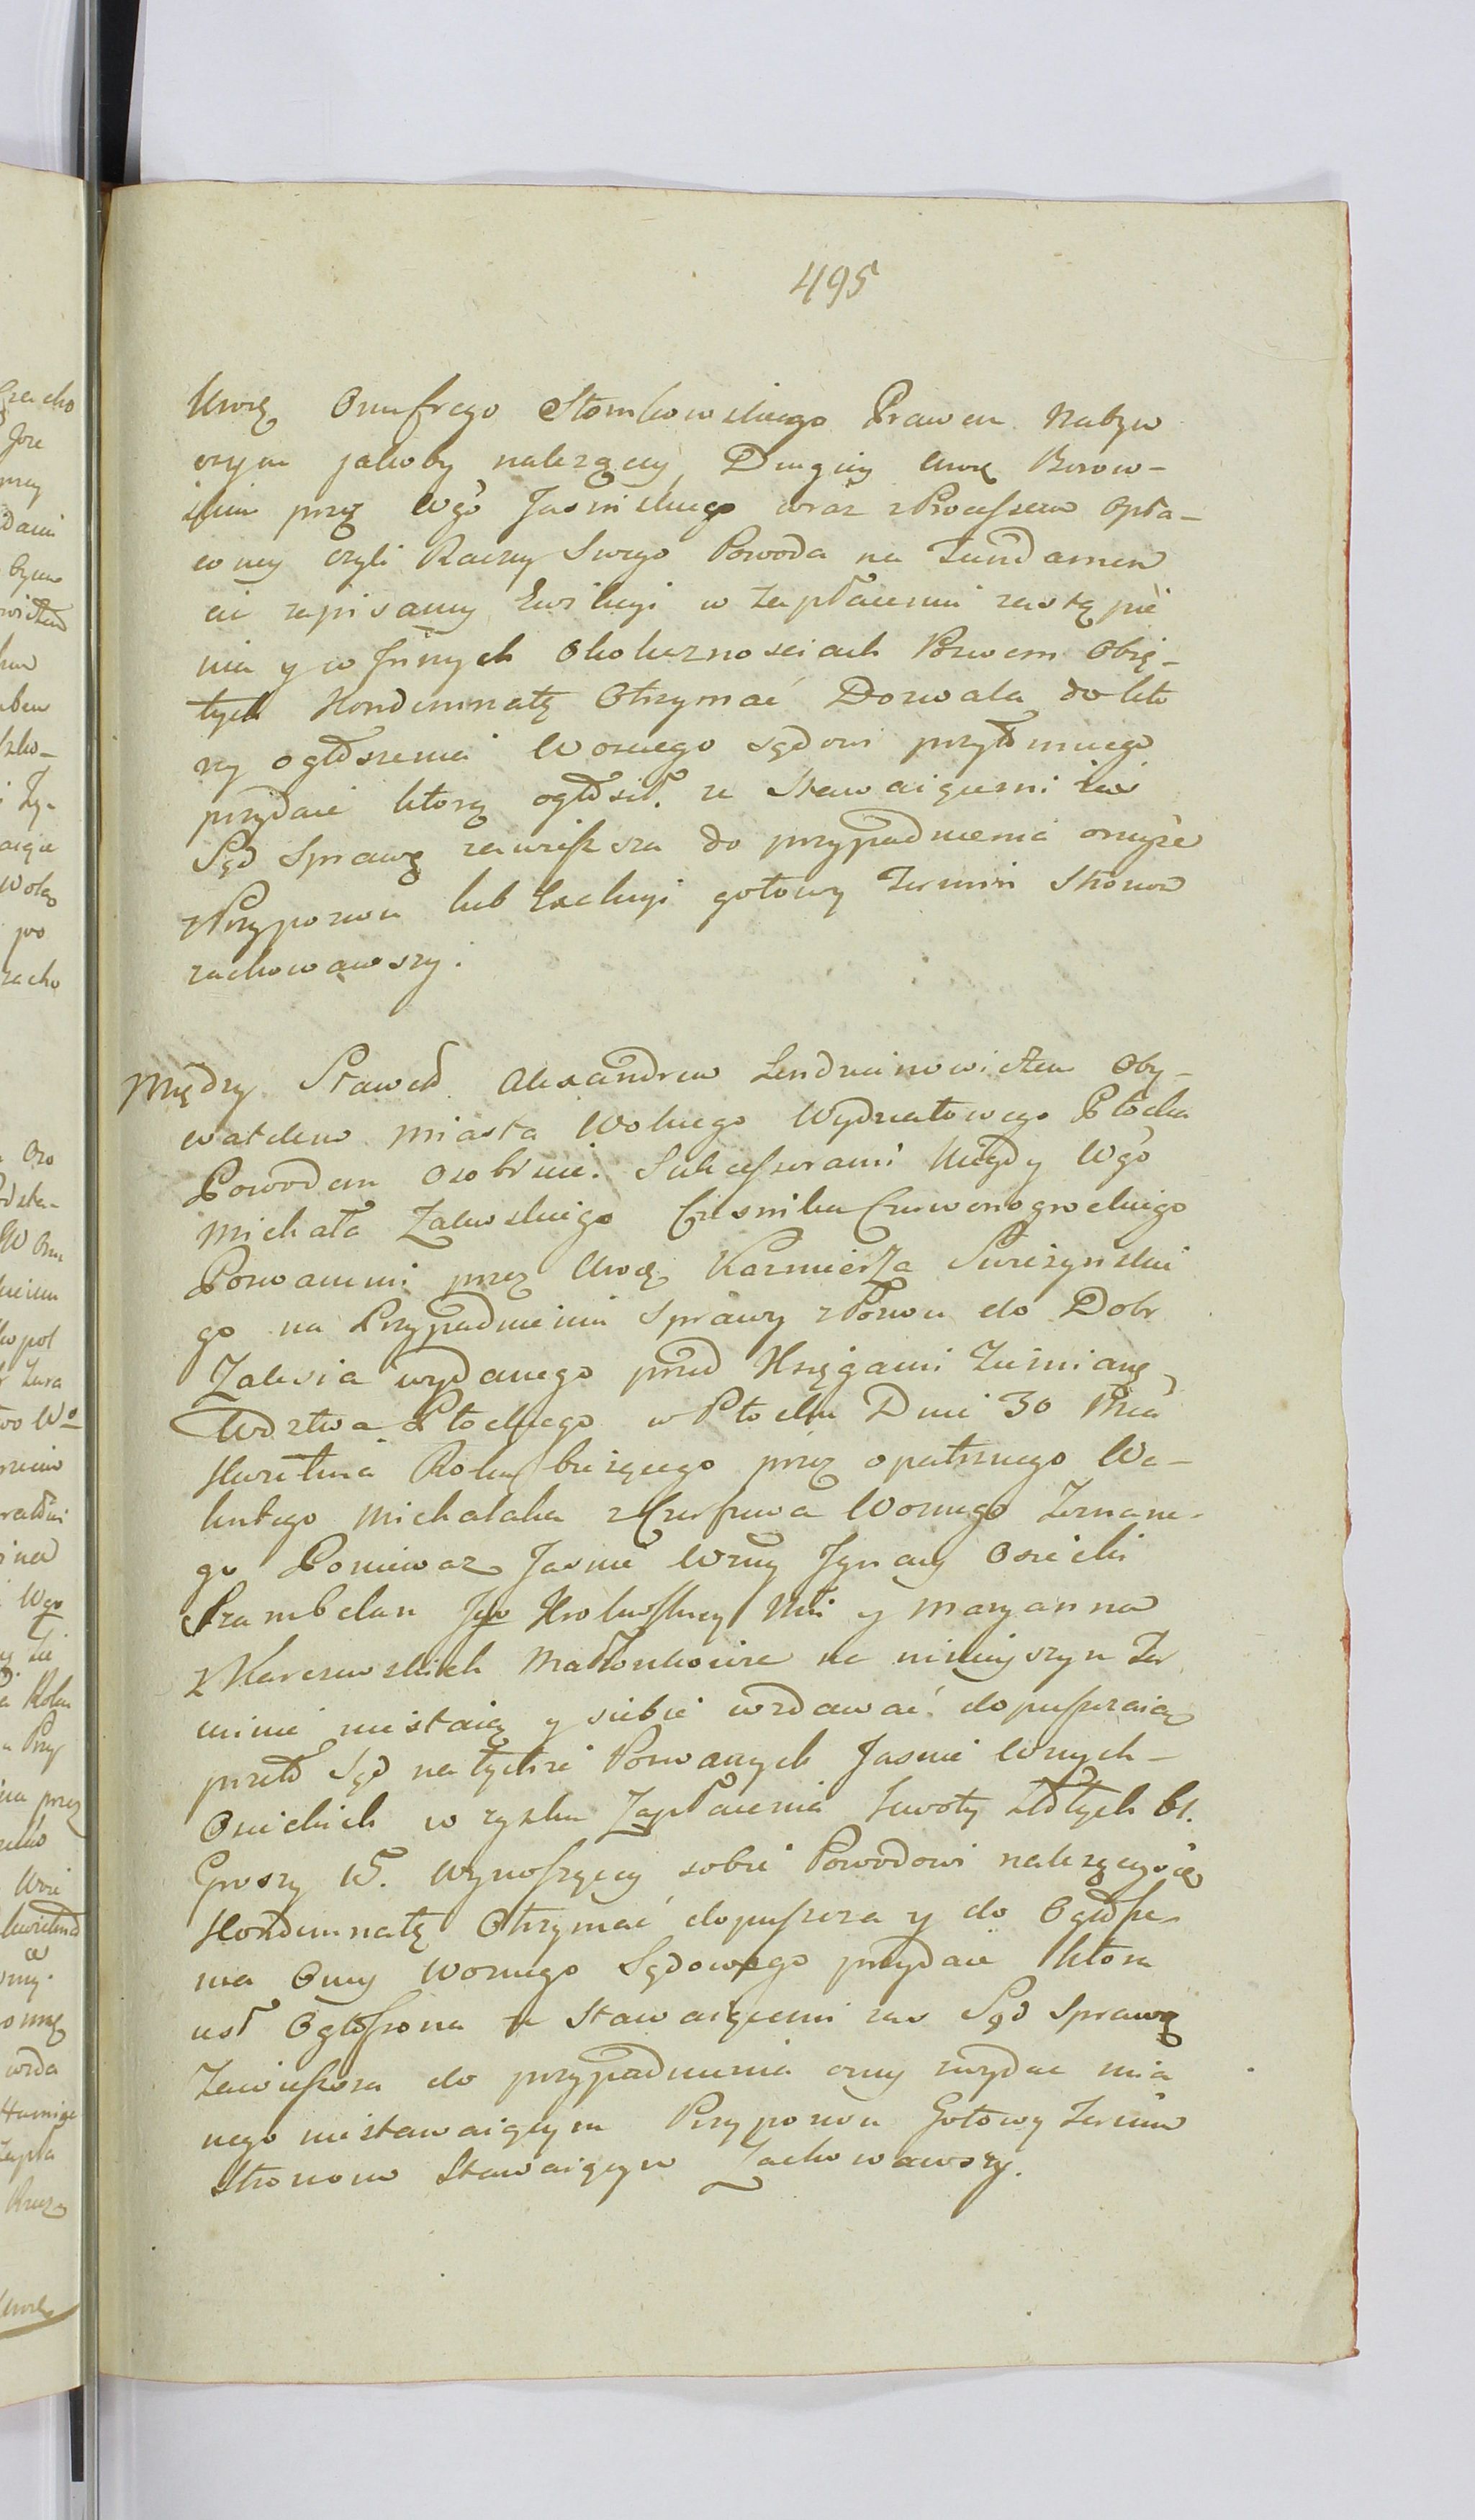 495
Urodz. Onufrego Słomkowskiego Prawem Nabyw
czym jakoby należący, Drugiey Urodz. Borow-
skim przez Wgo Jasinskiego wraz z Processem Opła-
coney czyli Raczey Swego Powoda na Fundamen
cie zapisaney Ewikcyi w zapłaceniu zastąpie
nia y w Innych Okolicznosciach Pozwem Obię-
tych Kondemnatę Otrzymać Dozwala do kto
rey ogłoszenia Woznego sądowi przytomnego
przydaie ktorą ogłosił. z Stawaiącemi zaś
Sąd Sprawę zawiesza do przypadnienia oneyże
z Przypozwu lub Exekucyi gotowy Termin Stronom
zachowawszy.
Między Sławet. Alexandrem Lendzinowiczem Oby-
watelem Miasta Wolnego Wydziałowego Płocka
Powodem Osobiscie. Sukcessorami Niegdy Wgo
Michała Zalewskiego Czesnika Czerwonogrodzkiego
Pozwanemi przez Urodz. Kazmierza Swiezynskie
go na Przypadnieniu Sprawy z Pozwu do Dobr
Zalesia wydanego przed Księgami Ziemianz.
Wdztwa Płockiego w Płocku Dnia 30 Mca
Kwietnia Roku bieżącego przez opatrznego Wa-
lentego Michalaka z Woznego Zeznane-
go Ponieważ Jasnie Wzny Ignacy Osiecki
Szambelan Jgo Krolewskiey Mci y Maryanna
z Karczewskich Małżonkowie na ninieyszym Ter
minie niestaią y siebie wzdawać dopuszczaią
przeto Sąd na tychże Pozwanych Jasnie Wznych-
Osieckich w zysku Zapłacenia kwoty Złotych 61.
Groszy 15. wynoszącey sobie Powodowi należącey się
Kondemnatę Otrzymać dopuszcza y do Ogłosze-
nia Oney Woznego Sądowego przydaie ktora
iest Ogłoszona z Stawaiącemi zas Sąd Sprawę
Zawiesza do przypadnienia oney z wydac mia
nego niestawaiącym Przypozwu Gotowy Termin
Stronom Stawaiącym Zachowawszy.